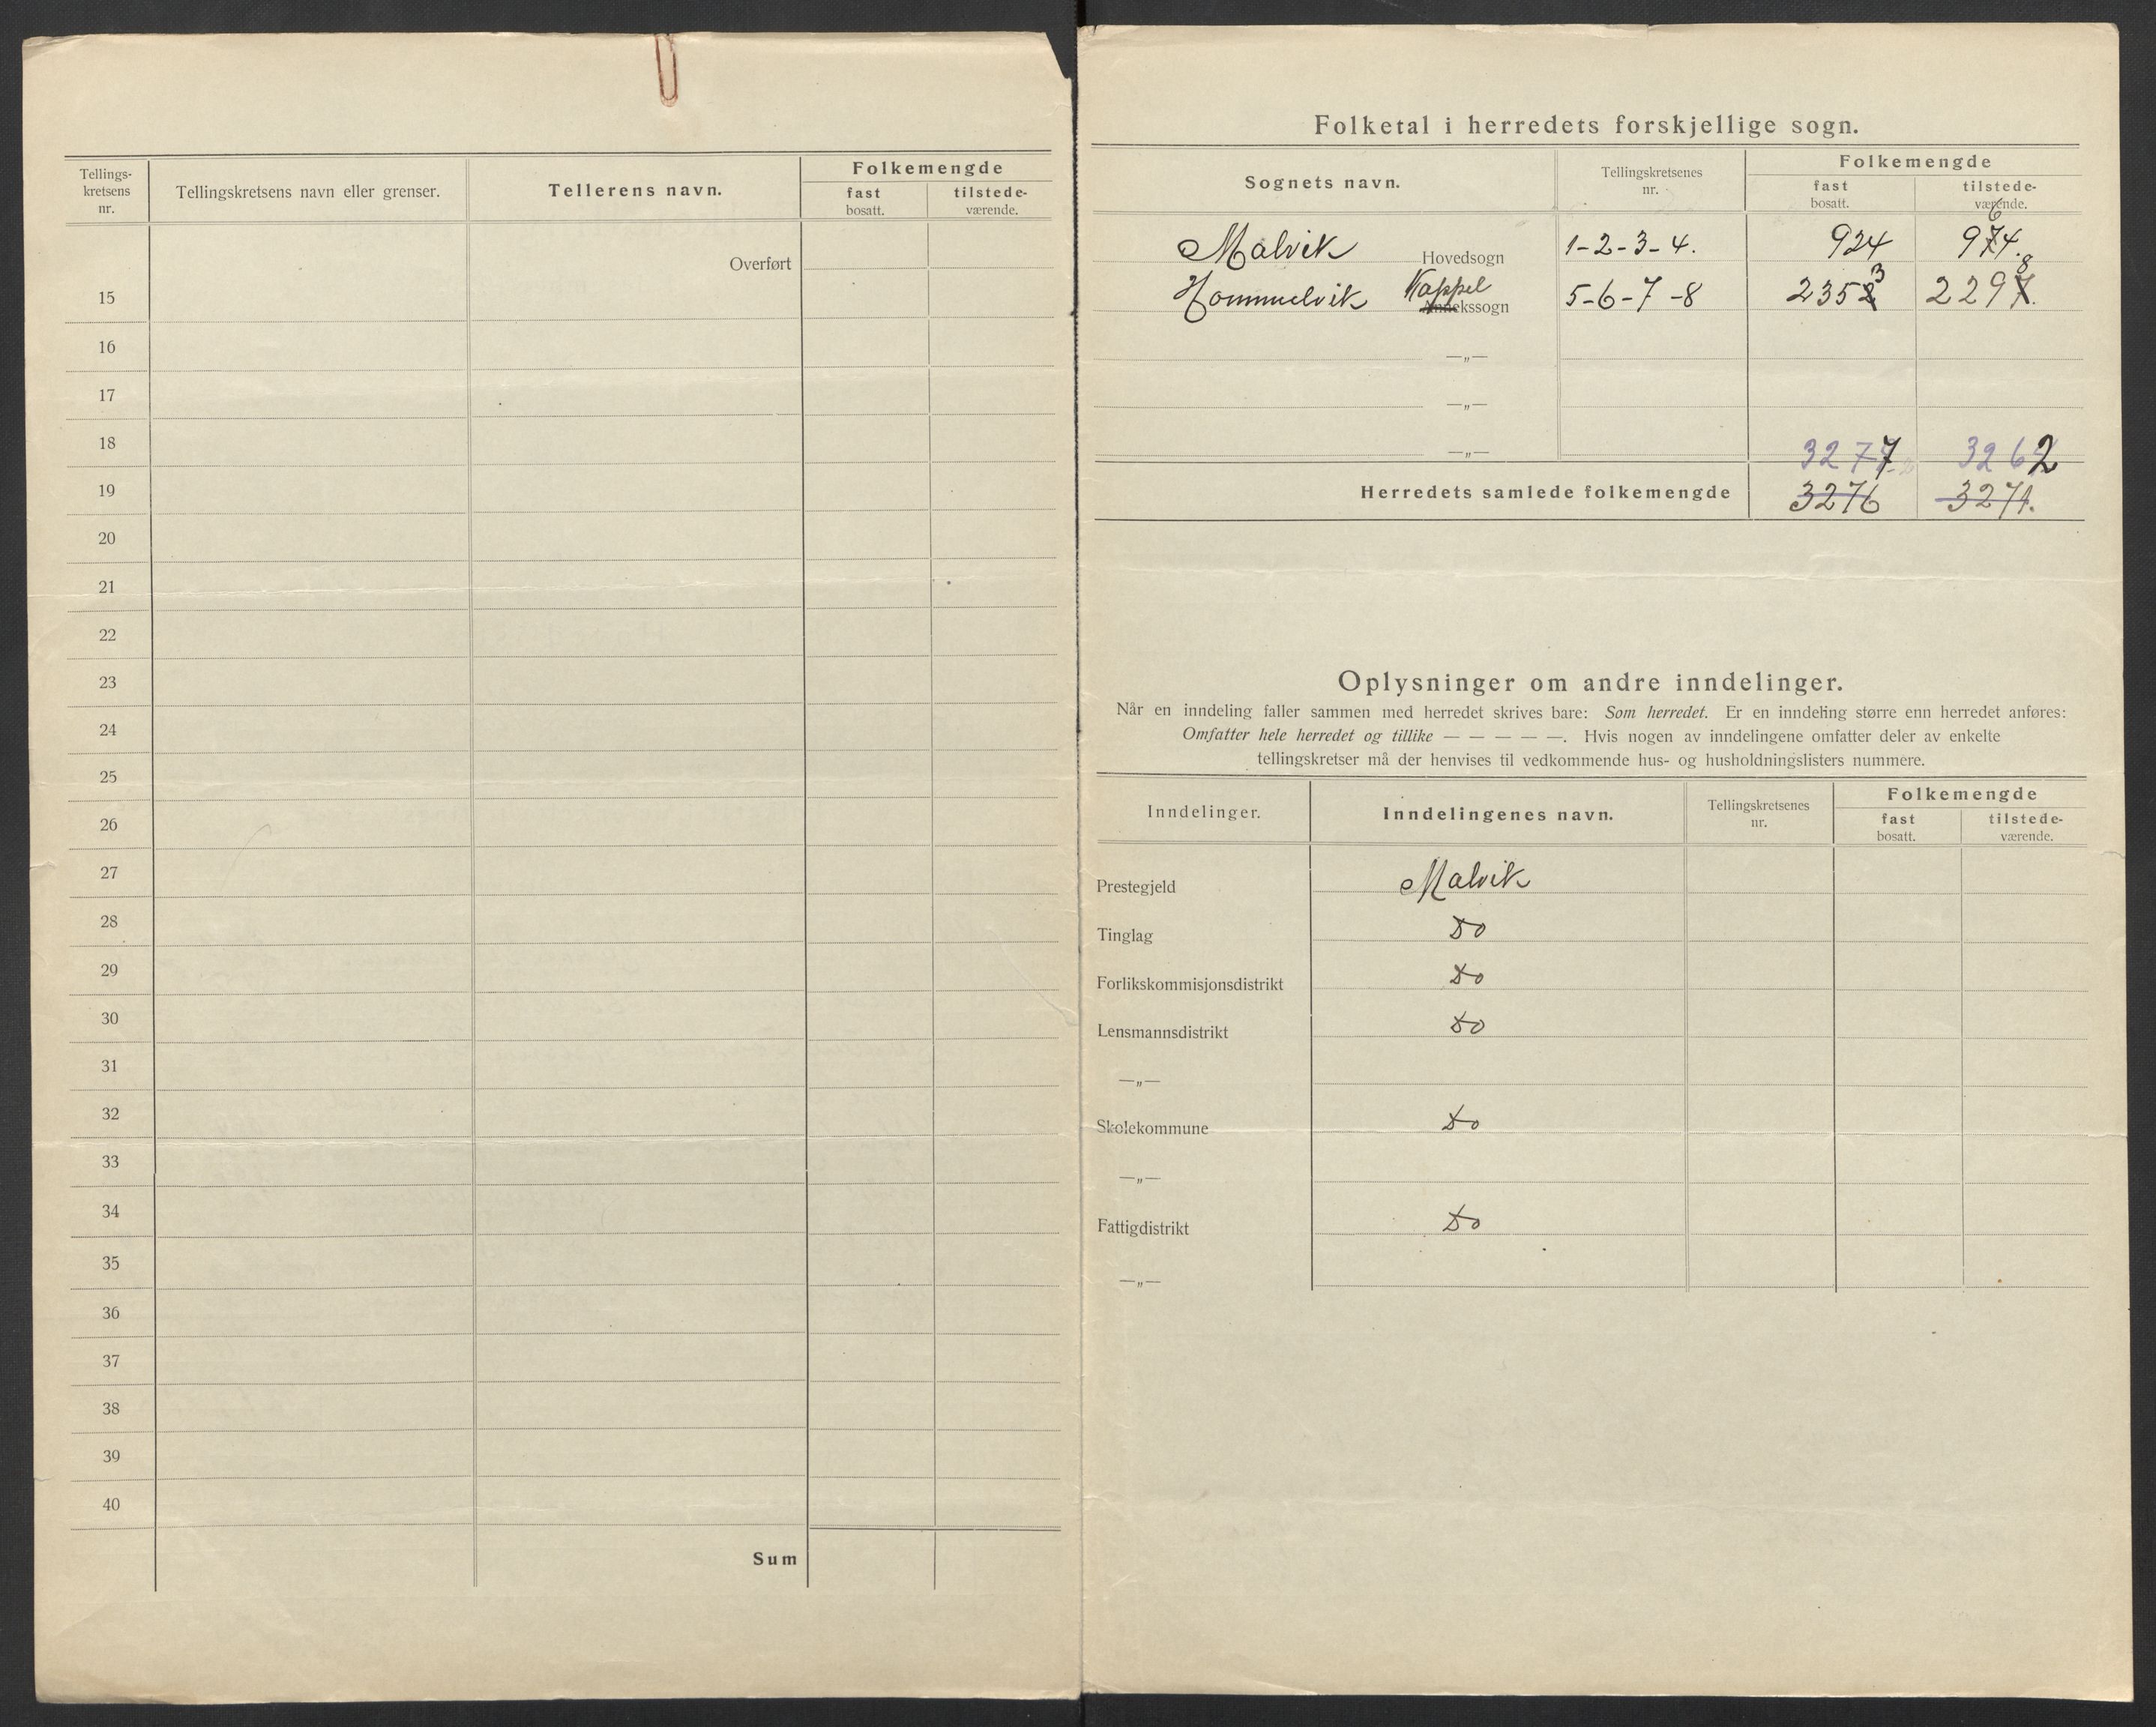 Tellings-
kretsens
nr.
Tellingskretsens navn eller grenser.
Tellerens navn.
Folkemengde
fast
bosatt.
tilstede-
værende.
Overført
15
16
17
18
19
20
21
22
23
24
25
26
27
28
29
30
31
32
33
34
35
36
37
38
39
40
Sum
Folketal i herredets forskjellige sogn.
Sognets navn.
Tellingskretsenes
nr.
Folkemengde
fast
bosatt.
tilstede-
værende.
6
Malvik Hovedsogn 1-2-3-4. 924 974.
3 8
Hommelvik Kappel Annekssogn 5-6-7-8 2352 2297.
—„—
—„—
—„— 3277 3262
Herredets samlede folkemengde 3276 3271.
Oplysninger om andre inndelinger.
Når en inndeling faller sammen med herredet skrives bare: Som herredet. Er en inndeling større enn herredet anføres:
Omfatter hele herredet og tillike — — — — —. Hvis nogen av inndelingene omfatter deler av enkelte
tellingskretser må der henvises til vedkommende hus- og husholdningslisters nummere.
Inndelinger.
Inndelingenes navn.
Tellingskretsenes
nr.
Folkemengde
fast
bosatt.
tilstede-
værende.
Prestegjeld Malvik
Tinglag Do
Forlikskommisjonsdistrikt Do
Lensmannsdistrikt Do
—„—
Skolekommune Do
—„—
Fattigdistrikt Do
—„—